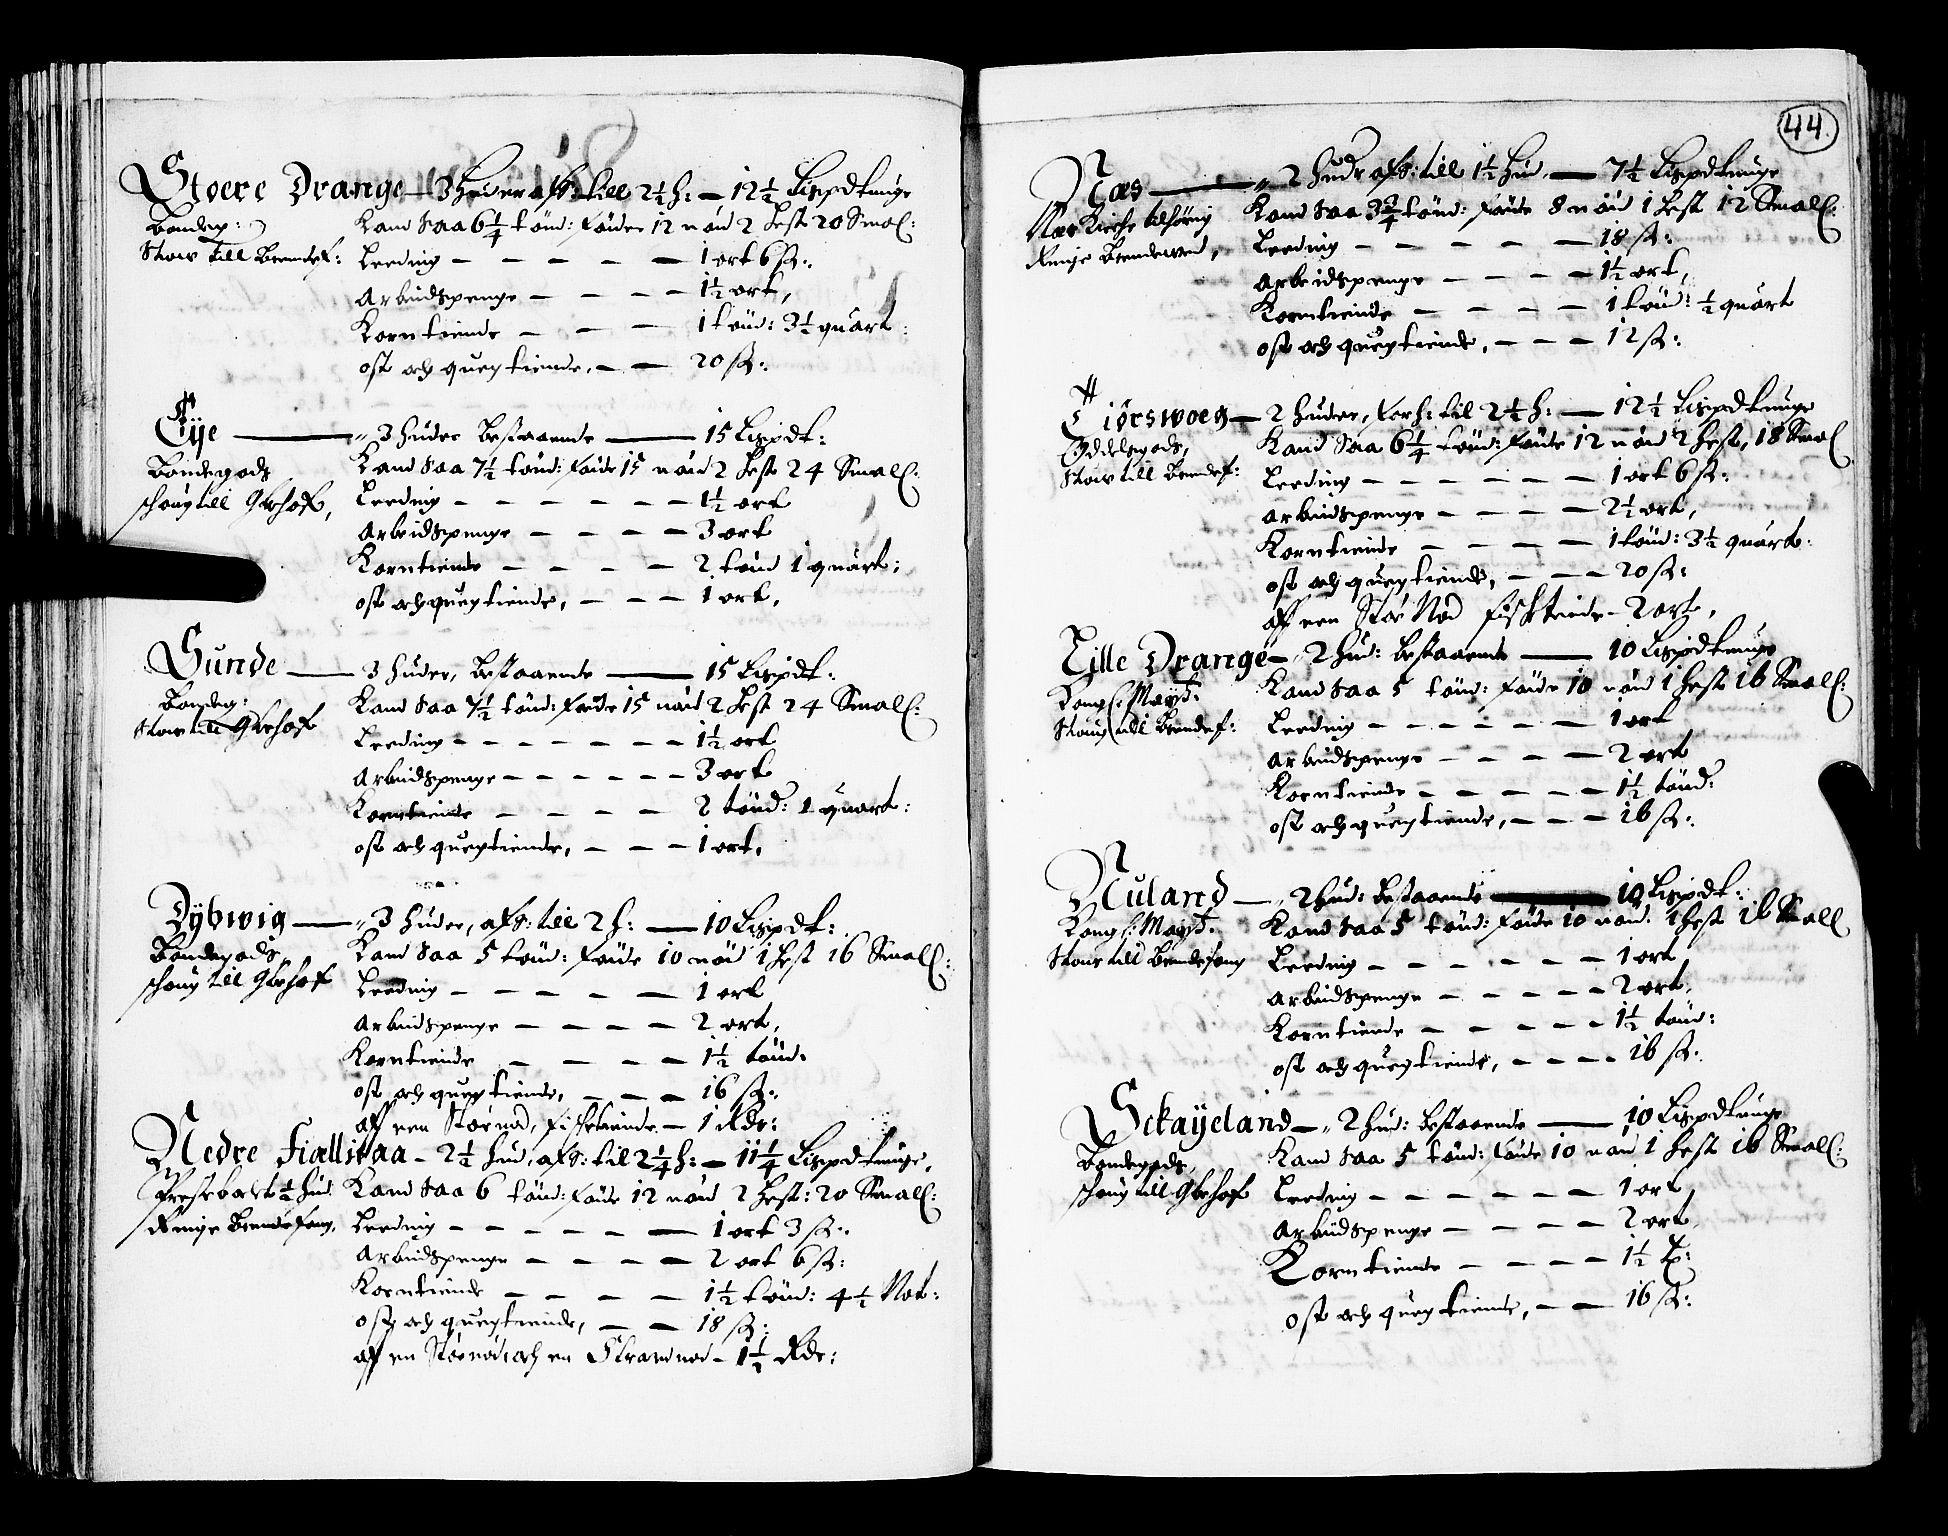 Stoere Drange — 3 huder afs: till 2½ h: — 12½ Lispd tunge
Bondeg:
Skow till Brendef:
Kand saa 6¼ tønd: føude 12 nød 2 hest 20 Smal:
Leeding — — — — — 1 ort 6 sk:
Arbeidspenge — — — — 1½ ort,
Korntiende — — — 1 tønd: 3½ quart:
ost och quegtiende, — — 20 sk:
Eye — 3 huder bestaaende — 15 Lispdt:
Bondegods
schoug till G behof,
Kand saa 7½ tønd: føude 15 nød 2 hest 24 Small:
Leeding — — — — — — 1½ ort
Arbeidspenge — — — — 3 ort
Korntiende — — — — 2 tønd 1 quart:
ost och quegtiende, — — — 1 ort,
Sunde — 3 huder, bestaaende — 15 Lispdt:
Bondeg:
Skow till G behof
Kand saa 7½ tønd: føude 15 nød 2 hest 24 Small:
Leeding — — — — — — 1½ ort
Arbeidspenge — — — — — — 3 ort
Korntiende — — — — 2 tønd: 1 quart:
ost och quegtiende, — — — 1 ort,
Dybwig — 3 huder, afs: till 2 h: — 10 Lispdt:
Bondegods
schoug till G behof
Kand saa 5 tønd: føude 10 nød 1 hest 16 Small:
Leeding — — — — — 1 ort
Arbeidspenge — — — — 2 ort,
Korntiende — — — — 1½ tønd:
ost och quegtiende, — — — 16 sk:
aff een Stoer nod, fisketiende — 1 Rdr:
Nedre Fiællskaa — 2½ hud, afs: til 2¼ h: — 11¼ Lispd tunge,
Prestebolet ½ hud
Ringe brendefang,
Kand saa 6 tønd: føude 12 nød 2 hest: 20 Small:
Leeding — — — — — — 1 ort 3 sk:
Arbeidspenge — — — — 2 ort 6 sk:
Korntiende — — — — 1½ tønd: 4½ Not:
ost och quegtiende, — — 18 sk:
aff en Stoer nod och en Strand nod — 1½ Rdr:
44
Næs — 2 hudr afs: till 1½ hud, — 7½ Lispd tunge
Næs Kirche tilhørig
Ringe brendeved,
Kand saa 3¾ tønd: føude 8 nød 1 hest 12 Small:
Leeding — — — — — — 18 sk:
Arbeidspenge — — — — 1½ ort,
Korntiende — — — — 1 tønd: ½ quart
ost och quegtiende, — — — 12 sk:
Tiørswoeg — 2 huder, forh: til 2½ h: — 12½ Lispd tunge
Oddelsgods,
Skow till brendef:
Kand saa 6¼ tønd: føude 12 nød 2 hest, 18 Smal
Leeding — — — — — — 1 ort 6 sk:
Arbeidspenge — — — — 2½ ort,
Korntiende — — — — 1 tønd: 3½ quart:
ost och quegtiende, — — — 20 sk:
aff een Stor Nod fisktiende — 2 ort,
Lille Drange — 2 hud: bestaaende — 10 Lispd tunge
Kongl: Mayt:
Skoug till brendef:
Kand saa 5 tønd: føude 10 nød 1 hest 16 Small:
Leeding — — — — — — 1 ort
Arbeidspenge — — — — 2 ort
Korntiende — — — — — 1½ tønd:
ost och quegtiende, — — — 16 sk:
Nuland — 2 hud: bestaaende — 10 Lispdt:
Kongl: Mayt:
Skow till brendefang
Kand saa 5 tønd: føude 10 nød. 1 hest 16 Small
Leeding — — — — — — 1 ort
Arbeidspenge — — — — — 2 ort,
Korntiende — — — — — 1½ tønd:
ost och quegtiende, — — — — 16 sk:
Sckayeland — 2 hud: bestaaende — 10 Lispd tunge
Bondegods,
schoug till G behof
Kand saa 5 tønd: føude 10 nød 1 hest 16 Small:
Leeding — — — — — — 1 ort
Arbeidspenge — — — — 2 ort
Korntiende — — — — 1½ t:
ost och quegtiende, — — 16 sk: